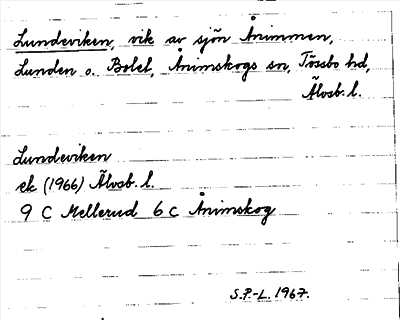 Lundeviken, vik av sjön Ånimmen,
Lunden o. Bolet, Ånimskogs sn, Tössbo hd,
Älvsb. l.
Lundeviken
ek (1966) Älvsb. l.
9 C Mellerud 6 c Ånimskog
S.P.-L. 1967.